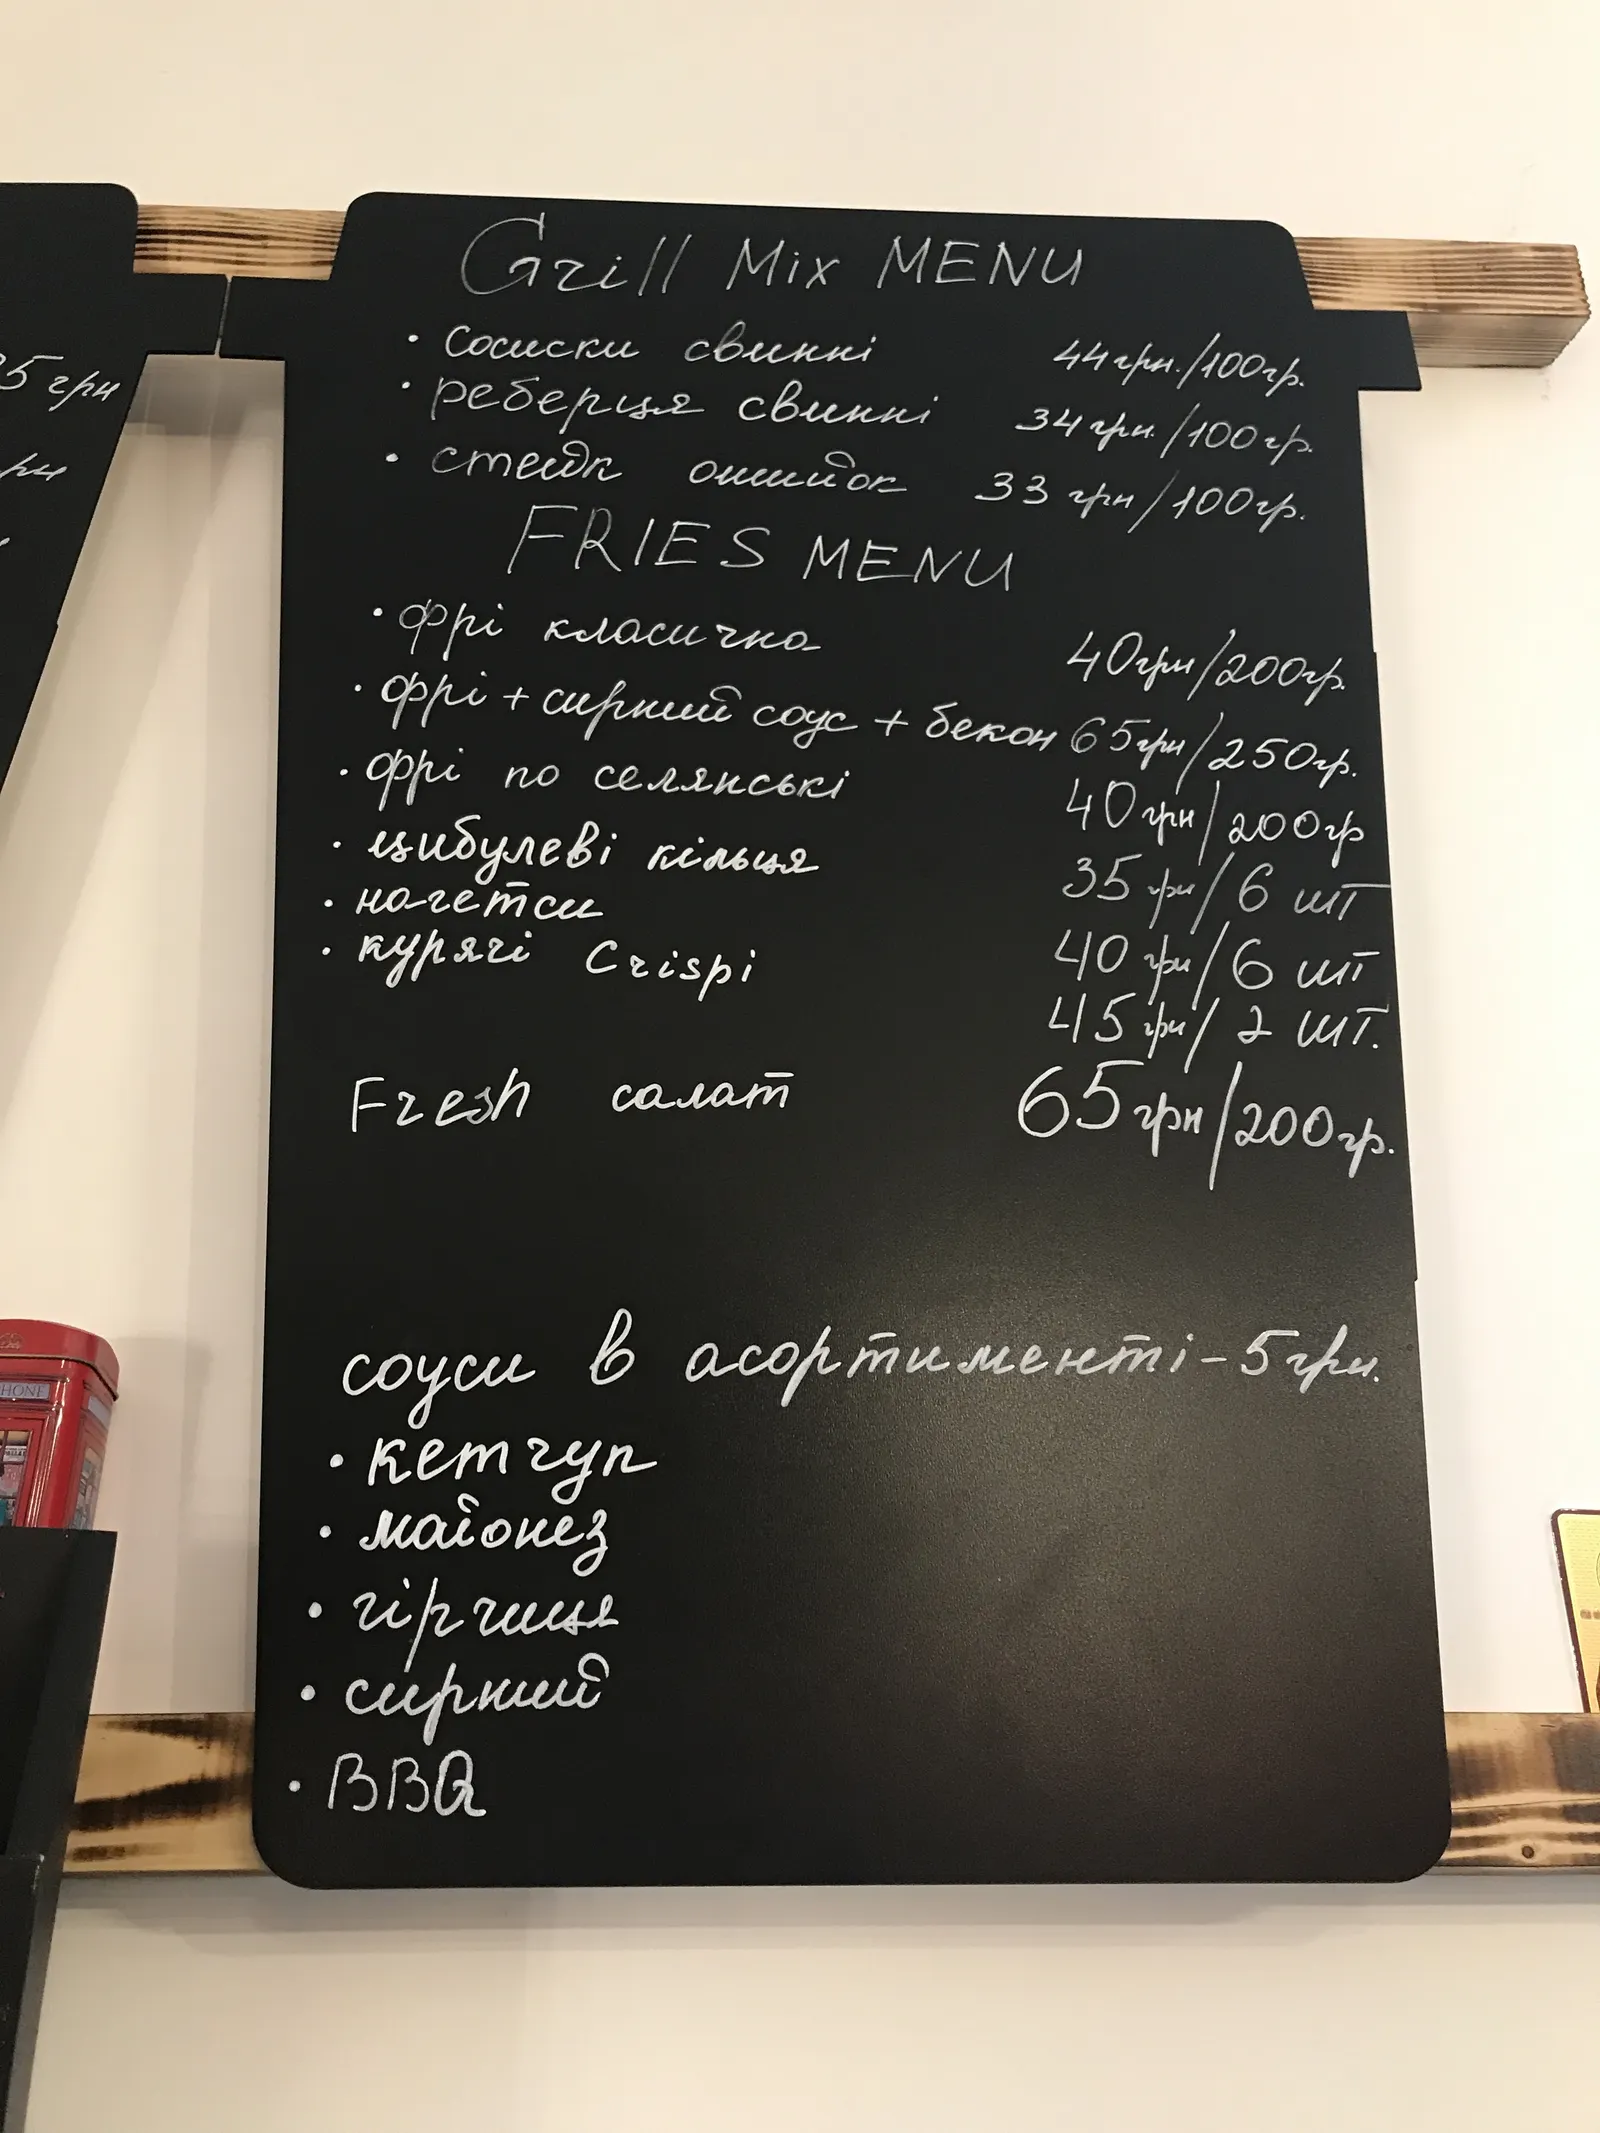 Grill Mix MENU
• сосиски свинні 44грн./100гр.
• реберця свинні 34грн./100гр.
• стейк ошийок 33грн/100гр.
FRIES MENU
• фрі класична 40грн/200гр.
• фрі + сирний соус + бекон 65грн/250гр.
• фрі по селянські 40грн/200гр
• цибулеві кільця 35грн/6 шт
• нагетси 40грн/6 шт
• курячі Crispi 45грн/2 шт.
Fresh салат 65грн/200гр.
соуси в асортименті - 5грн.
• кетчуп
• майонез
• гірчиця
• сирний
• BBQ
35 грн
грн
HONE